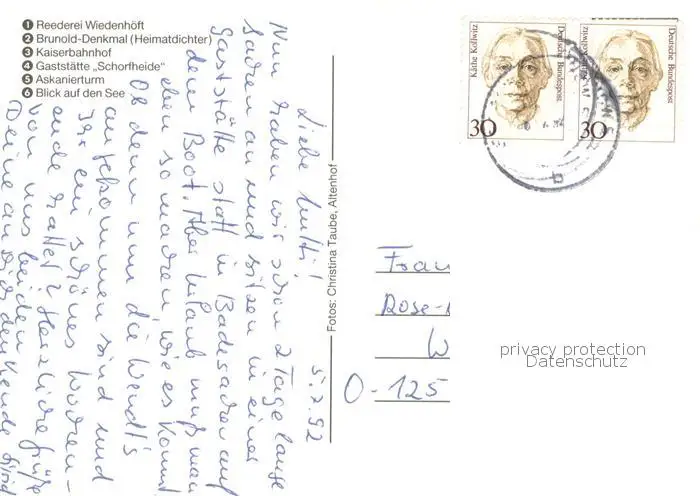 ❶ Reederei Wiedenhöft
❷ Brunold-Denkmal (Heimatdichter)
❸ Kaiserbahnhof
❹ Gaststätte „Schorfheide"
❺ Askanierturm
❻ Blick auf den See
5.7.92
Liebe Mutti!
Nun haben wir schon 2 Tage lange
Sachen an und sitzen in einer
Gaststätte statt in Badesachen auf
dem Boot. Aber Urlaub muß man
eben so machen, wie es kommt
Ob denn nun die Wendt's
angekommen sind und
Ihr ein schönes Wochen-
ende hattet? Herzliche Grüße
von uns beiden
Deine an Dich denkende
Fotos: Christina Taube, Altenhof
Käthe Kollwitz
Deutsche Bundespost
30
Käthe Kollwitz
Deutsche Bundespost
30
Frau
Rose-
W
O-125
privacy protection
Datenschutz